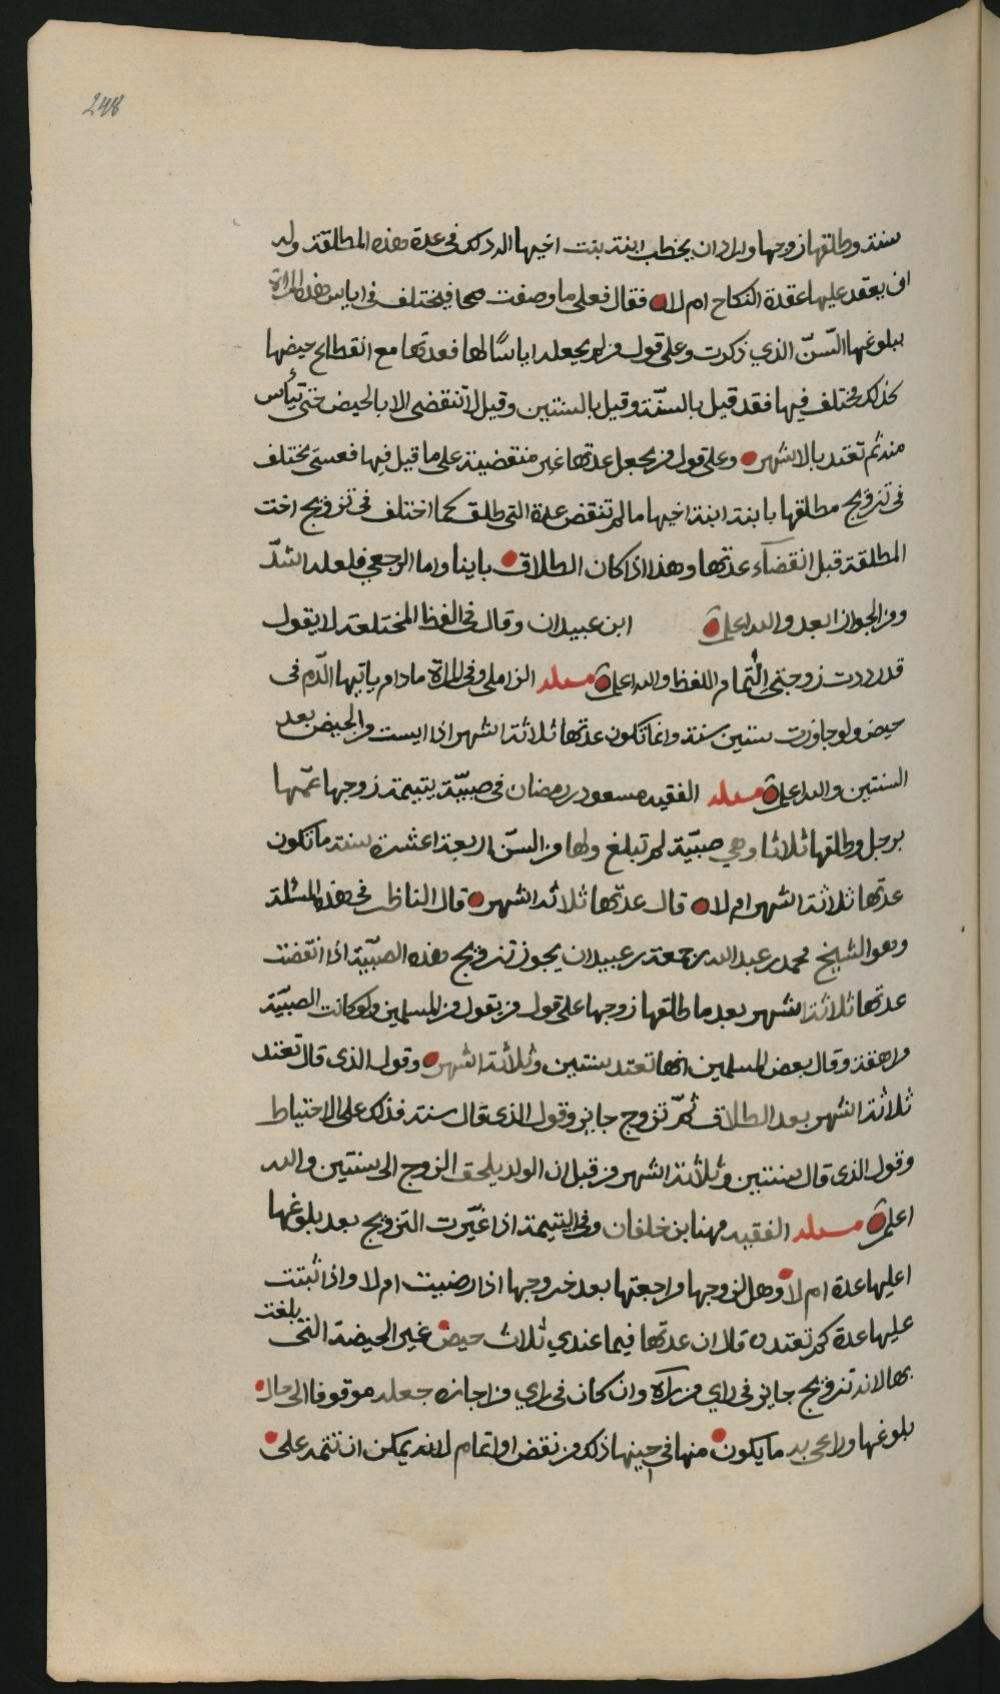 248
سنة وطلقها زوجها واراد ان يخطب ابنة بنت اخيها اله ذلك في عدة هذه المطلقة وله
ان يعقد عليها عقدة النكاح ام لا فقال فعلى ما وصفت فيختلف في اياس هذه المراة
ببلوغها السّنّ الذي ذكرت وعلى قول من لم يجعله اياسًا لها فعدتها مع انقطاع حيضها
كذلك مختلف فيها فقد قيل بالسنّة وقيل بالسنتين وقيل لا تنقضي الا بالحيض حتى تيأس
منه ثم تعتد بالاشهر وعلى قول من يجعل عدتها غير منقضية على ما قيل فيها فعسى يختلف
في تزويج مطلقها بابنة ابنة اخيها ما لم تنقض عدة التي طلق كما اختلف في تزويج اخت
المطلقة قبل انقضآء عدتها وهذا اذا كان الطلاق باينا واما الرجعي فلعله اشدّ
ومن الجواز ابعد والله اعلم ابن عبيدان وقال في الفظ المختلعة لا يقول
قد رددت زوجتي اِلّتمام اللفظ والله اعلم مسلة الزاملي وفي المراة ما دام ياتيها الدّم في
حيض ولو جاوزت ستين سنة وانما تكون عدتها ثلاثة اشهر اذا ايست من الحيض بعد
الستين والله اعلم مسلة الفقيه مسعود بن رمضان في صبيّة يتيمة زوجها عمّها
برجل وطلقها ثلاثا وهي صبيّة لم تبلغ ولها من السنّ اربعة اعشرة سنة ما تكون
عدتها ثلاثة اشهر ام لا قال عدتها ثلاثة اشهر قال الناظر في هذه المسئلة
وهو الشيخ محمد بن عبدالله بن جمعة بن عبيدان يجوز تزويج هذه الصبيّة اذا انقضت
عدتها ثلاثة اشهر بعد ما طلقها زوجها على قول من يقول من المسلمين ولو كانت الصبيّة
مراهقة وقال بعض المسلمين انها تعتد سنتين وثلاثة اشهر وقول الذي قال تعتد
ثلاثة اشهر بعد الطلاق ثمّ تزوج جايز وقول الذي قال سنة فذلك على الاحتياط
وقول الذي قال سنتين وثلاثة اشهر من قبل ان الولد يلحق الزوج الى سنتين والله
اعلم مسلة الفقيه مهنا بن خلفان وفي اليتيمة اذا غيّرت التزويج بعد بلوغها
اعليها عدة ام لا وهل لزوجها مراجعتها بعد خروجها اذا رضيت ام لا واذا ثبتت
عليها عدة كم تعتد قال ان عدتها فيما عندي ثلاث حيض غير الحيضة التي بلغت
بها لانه تزويج جايز في راي من رآه وان كان في راي من اجازه جعله موقوفا الى حال
بلوغها وراعى به ما يكون منها في حينها ذلك من نقض او اتمام لانه يمكن ان تتمه على